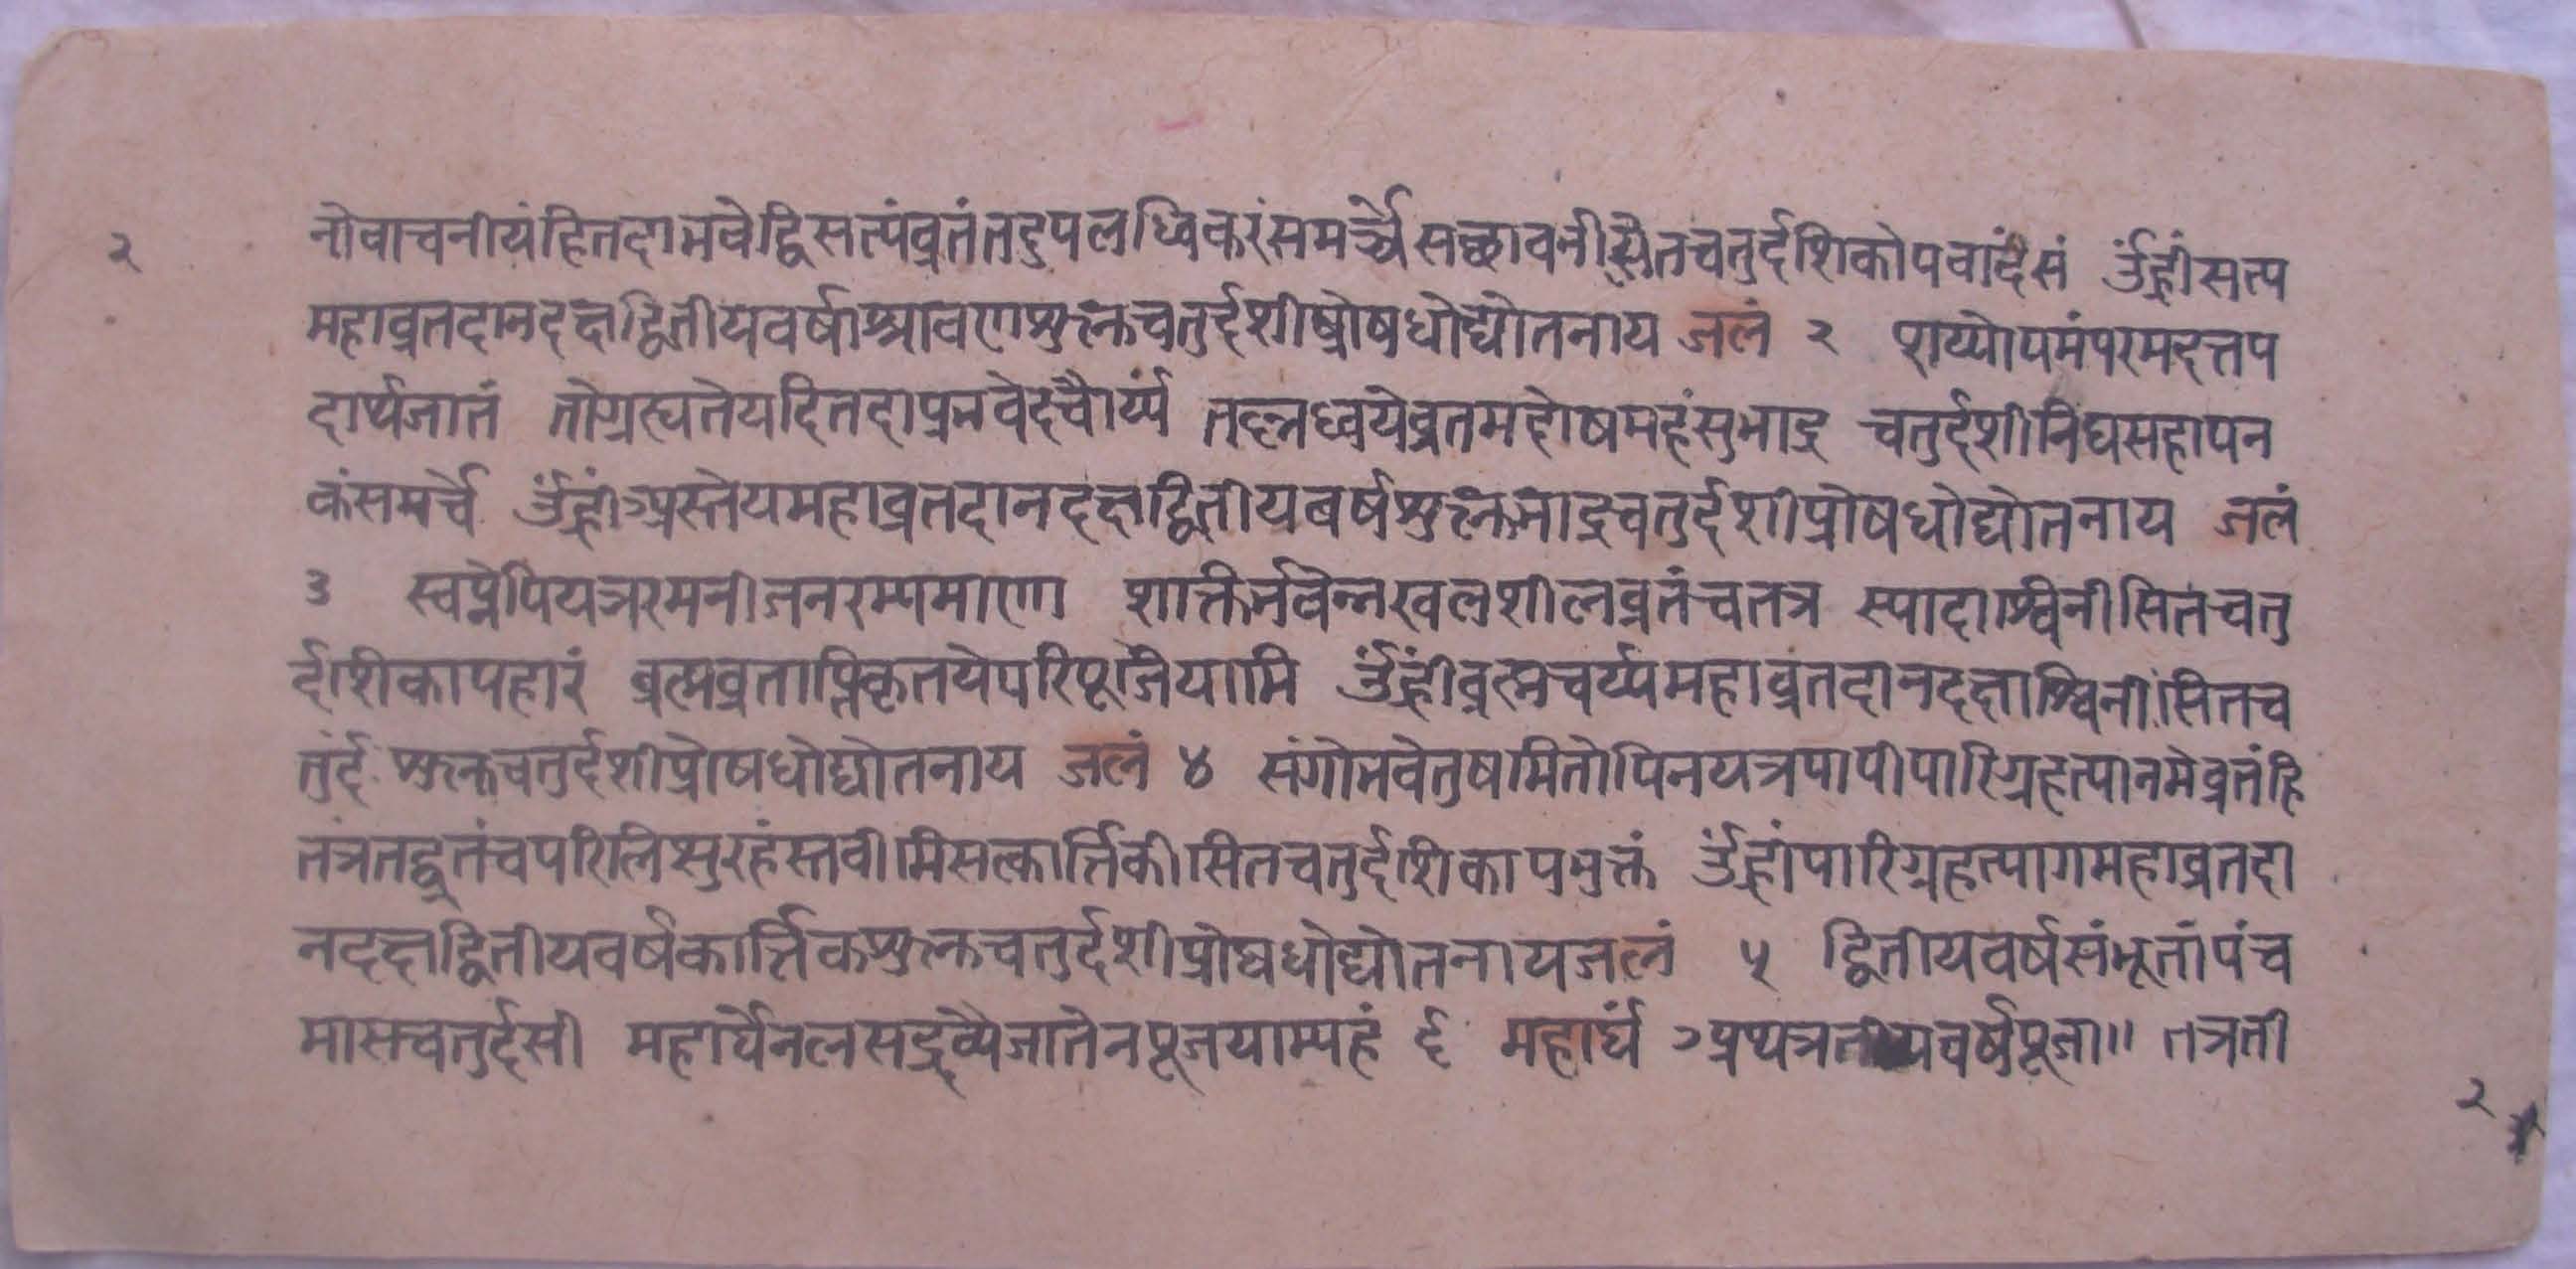 २
नोवाचनीयंहितदाभवेद्विसत्यंव्रतंतदुपलध्विकरंसमर्च्चेसच्छ्रावनीसैतचतुर्दशिकोपवादंसं ॐह्रींसत्य
महाव्रतदानदक्षद्वितीयवर्षाश्रावणशुक्लचतुर्दशीप्रोषधोद्योतनाय जलं २ शय्योपमंपरमदत्तप
दार्थजातं तोग्रस्यतेयदितदाप्रभवेदचौर्य्यं तल्लध्वयेव्रतमदोषमहंसुभाद्र चतुर्दशीनिघसहापन
कंसमर्चे ॐह्रींअस्तेयमहाव्रतदानदक्षद्वितीयवर्षशुक्लभाद्रचतुर्दशीप्रोषधोद्योतनाय जलं
३ स्वप्नेपियत्ररमनीजनरम्यमाण शक्तिर्नवेन्नखलशीलव्रतंचतत्र स्यादाश्विनीसितचतु
र्दशिकापहारं ब्रह्मव्रताप्तिकृतयेपरिपूजयामि ॐह्रींब्रह्मचर्य्यमहाव्रतदानदक्षाश्विनीसितच
तुर्द शुक्लचतुर्दशीप्रोषधोद्योतनाय जलं ४ संगोभवेतुषमितोपिनयत्रपापीपारिग्रहत्यानमेव्रतंहि
तंत्रतद्व्रतंचपरिलिप्सुरहंस्तवीमिसत्कार्त्तिकीसितचतुर्दशिकाप्रभुक्तं ॐह्रींपारिग्रहत्यागमहाव्रतदा
नदक्षद्वितीयवर्षकार्त्तिकशुक्लचतुर्दशीप्रोषधोद्योतनायजलं ५ द्वितीयवर्षसंभूतांपंच
मासचतुर्दसी महार्घेनलसद्द्रव्यैजातेनपूजयाम्यहं ६ महार्घं अथत्रतीयवर्षपूजा॥ तत्रती
२